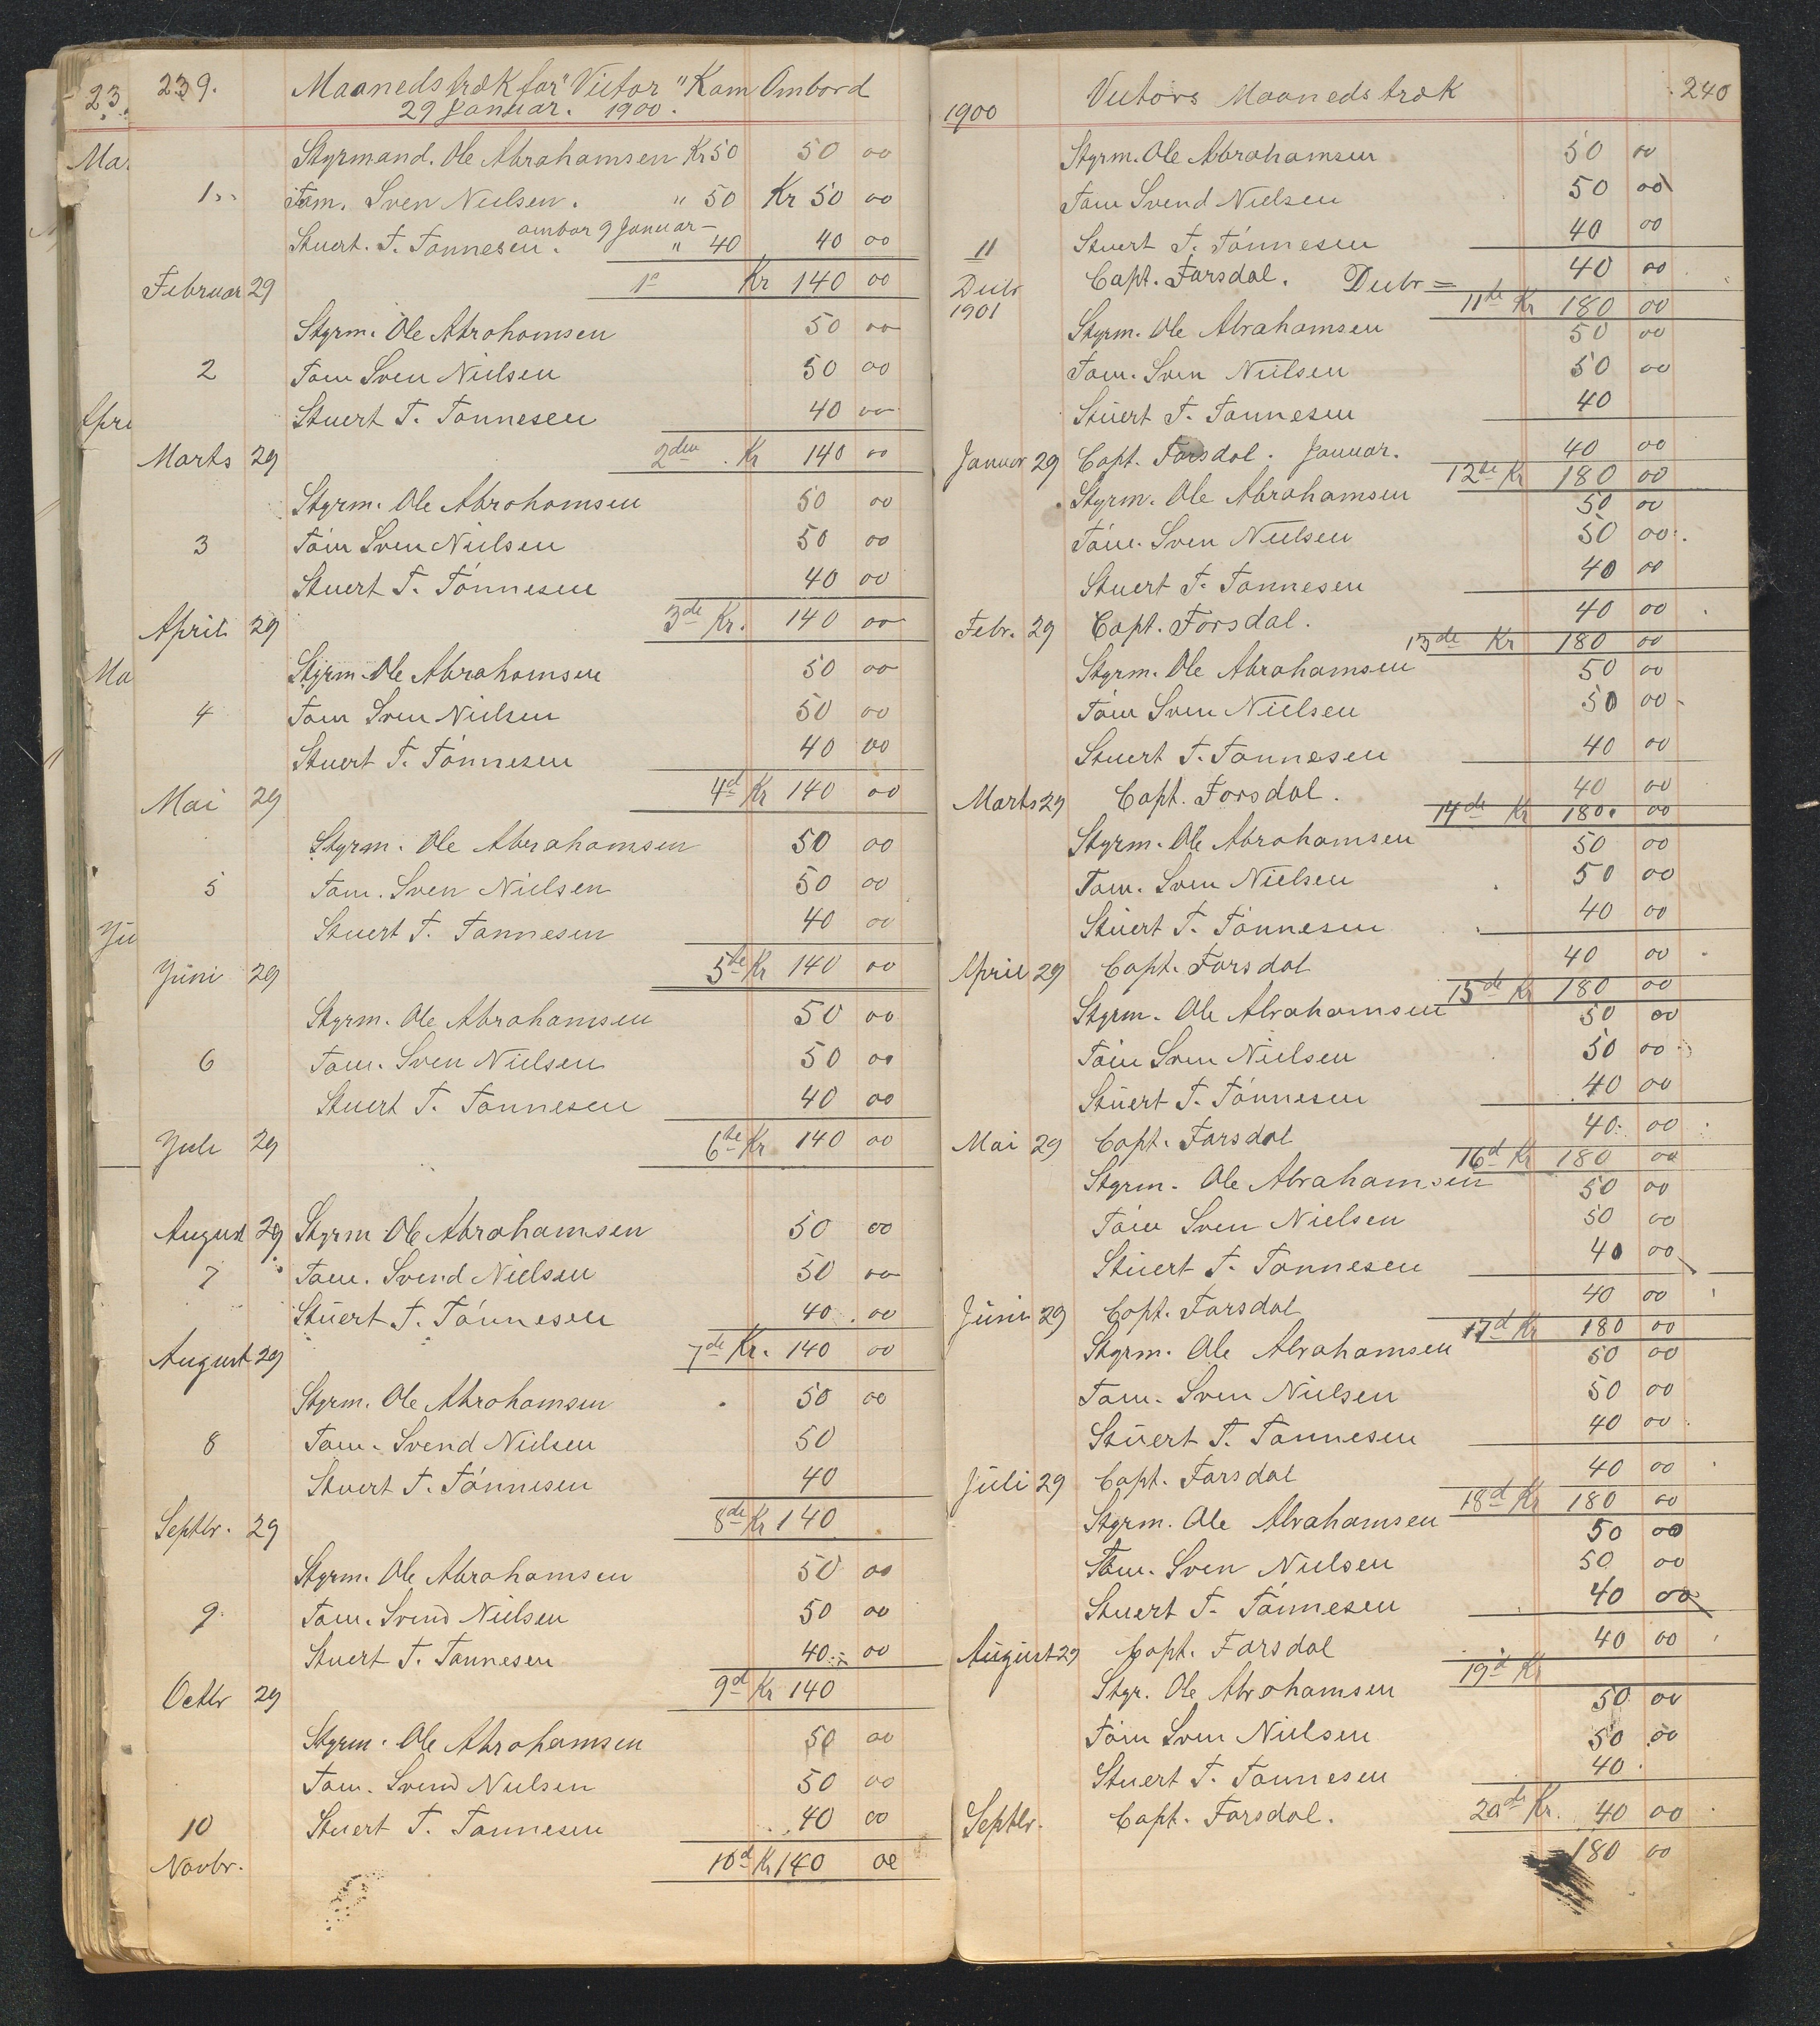 23.
Ma.
Apri
Ma
Ju
239.
Maanedstræk for "Victor" Kom Ombord
29 Januar. 1900.
Styrmand. Ole Abrahamsen Kr 50 50 00
1. Tøm. Sven Nielsen. " 50 Kr 50 00
ombor 9 Januar
Stuert. T. Tønnesen. " 40 40 00
Februar 29 1ste Kr 140 00
Styrm. Ole Abrahamsen 50 00
2 Tøm Sven Nielsen 50 00
Stuert T. Tønnesen 40 00
Marts 29 2den Kr 140 00
Styrm. Ole Abrahamsen 50 00
3 Tøm Sven Nielsen 50 00
Stuert T. Tønnesen 40 00
April 29 3de Kr. 140 00
Styrm. Ole Abrahamsen 50 00
4 Tøm Sven Nielsen 50 00
Stuert T. Tønnesen 40 00
Mai 29 4d Kr 140 00
Styrm. Ole Abrahamsen 50 00
5 Tøm. Sven Nielsen 50 00
Stuert T. Tønnesen 40 00
Juni 29 5te Kr 140 00
Styrm. Ole Abrahamsen 50 00
6 Tøm. Sven Nielsen 50 00
Stuert T. Tønnesen 40 00
Juli 29 6te Kr 140 00
August 29 Styrm Ole Abrahamsen 50 00
7 Tøm. Svend Nielsen 50 00
Stuert T. Tønnesen 40 00
August 29 7de Kr. 140 00
Styrm. Ole Abrahamsen 50 00
8 Tøm. Svend Nielsen 50
Stuert T. Tønnesen 40
Septbr. 29 8de Kr 140
Styrm. Ole Abrahamsen 50 00
9 Tøm. Svend Nielsen 50 00
Stuert T. Tønnesen 40 00
Octbr 29 9d Kr 140
Styrm. Ole Abrahamsen 50 00
Tøm. Svend Nielsen 50 00
10 Stuert T. Tønnesen 40 00
Novbr. 10d Kr 140 00
Victors Maanedstræk 240
1900
Styrm. Ole Abrahamsen 50 00
Tøm Svend Nielsen 50 00
11 Stuert T. Tønnesen 40 00
Decbr Capt. Farsdal. Decbr 40 00
1901 11de Kr 180 00
Styrm. Ole Abrahamsen 50 00
Tøm. Sven Nielsen 50 00
Stuert T. Tønnesen 40
Januar 29 Capt. Farsdal. Januar. 40 00
12te Kr 180 00
Styrm. Ole Abrahamsen 50 00
Tøm. Sven Nielsen 50 00
Stuert T. Tønnesen 40 00
Febr. 29 Capt. Farsdal. 40 00
13de Kr 180 00
Styrm. Ole Abrahamsen 50 00
Tøm Sven Nielsen 50 00
Stuert T. Tønnesen 40 00
Marts 29 Capt. Farsdal. 40 00
14de Kr 180. 00
Styrm. Ole Abrahamsen 50 00
Tøm. Sven Nielsen 50 00
Stuert T. Tønnesen 40 00
April 29 Capt. Farsdal 40 00
15de Kr 180 00
Styrm. Ole Abrahamsen 50 00
Tøm Sven Nielsen 50 00
Stuert T. Tønnesen 40 00
Mai 29 Capt. Farsdal 40 00
16d Kr 180 00
Styrm. Ole Abrahamsen 50 00
Tøm Sven Nielsen 50 00
Stuert T. Tønnesen 40 00
Juni 29 Capt. Farsdal 40 00
17d Kr 180 00
Styrm. Ole Abrahamsen 50 00
Tøm. Sven Nielsen 50 00
Stuert T. Tønnesen 40 00
Juli 29 Capt. Farsdal 40 00
18d Kr 180 00
Styrm. Ole Abrahamsen 50 00
Tøm. Sven Nielsen 50 00
Stuert T. Tønnesen 40 00
August 29 Capt. Farsdal 40 00
19d Kr
Styr. Ole Abrahamsen 50 00
Tøm Sven Nielsen 50 00
Stuert T. Tønnesen 40
Septbr. Capt. Farsdal. 20de Kr. 40 00
180 00